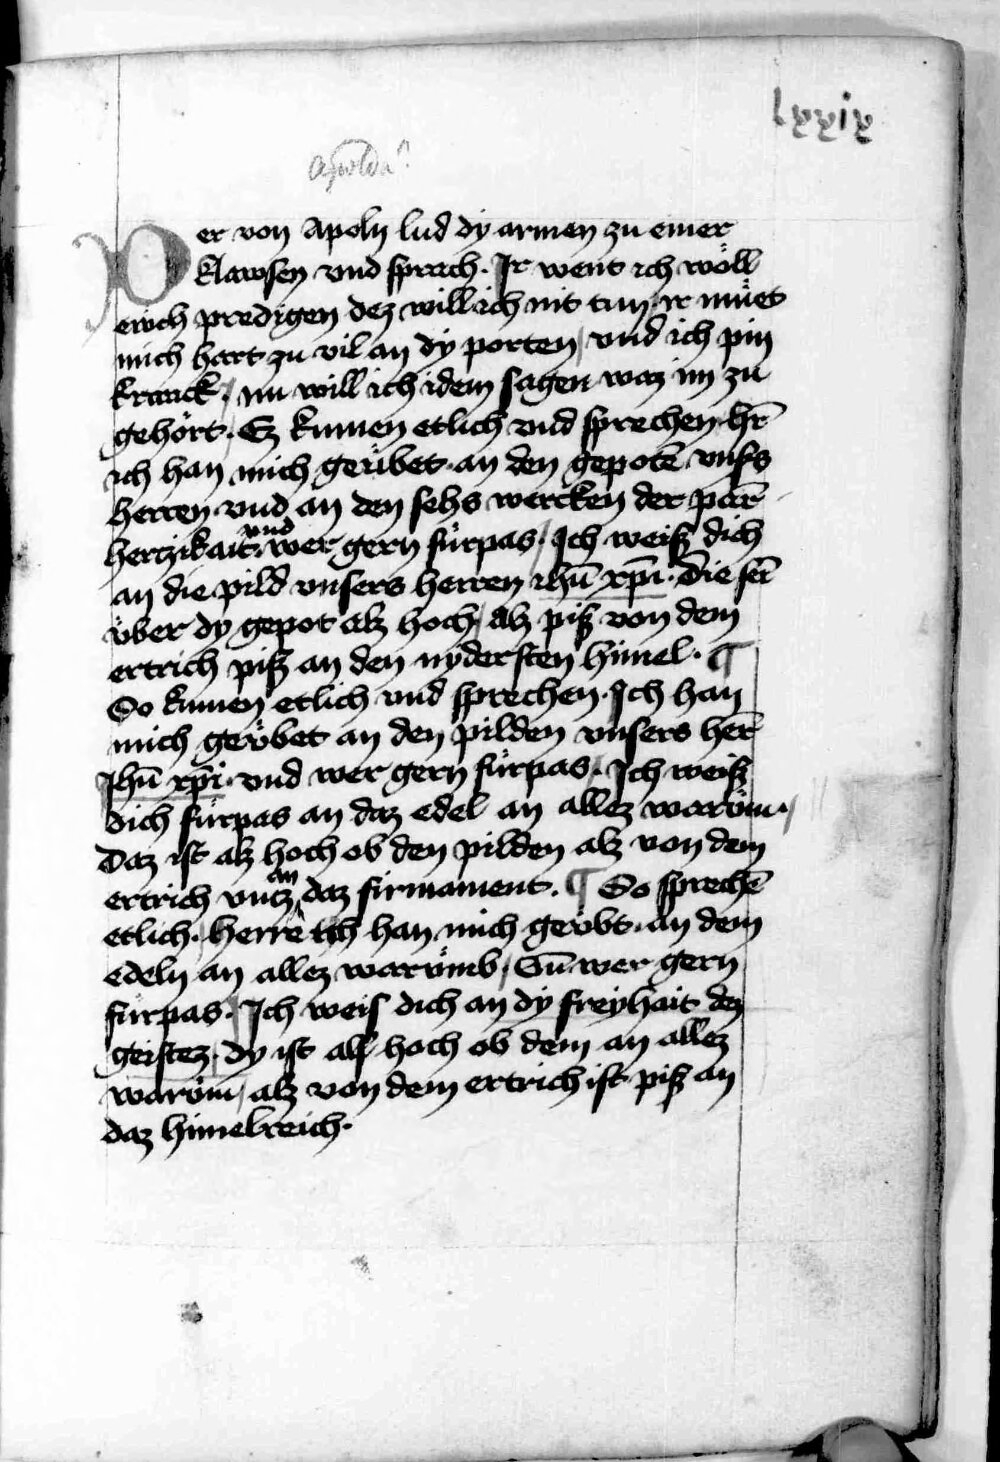 lxxix
Apolda?
Der von Apoln lud dy armen zu einer
klawsen vnd sprach. Ir went ich wöll
ewch predigen dez will ich nit tun. ir müet
mich hart zu vil an dy porten / vnd ich pin
kranck / nu will ich idem sagen waz im zu
gehört. Ez kumen etlich vnd sprechen hr̄
ich han mich geübet an den gepotē vnſs
herren vnd an den sehs wercken der parm̄
hertzikait. vnd wer gern fürpas / Ich weiß dich
an die pild vnsers herren ihū xp̄i. die sei͞
über dy gepot alz hoch / alz piß von dem
ertrich piß an den nydersten himel. ¶
So kumen etlich vnd sprechen. Ich han
mich geübet an den pilden vnsers her̄
Jhū xp̄i. vnd wer gern fürpas. Ich weiß
dich fürpas an daz edel an allez waröm. /
Daz ist alz hoch ob den pilden alz von dem
ertrich vntz an daz firmament. ¶ So sprechē
etlich. herre ich han mich geübt. an dem
edeln an allez warömb / vn̄ wer gern
fürpas. Ich weis dich an dy freyhait dez
geistez. dy ist als hoch ob dem an allez
waröm / alz von dem ertrich ist piß an
daz himelreich.